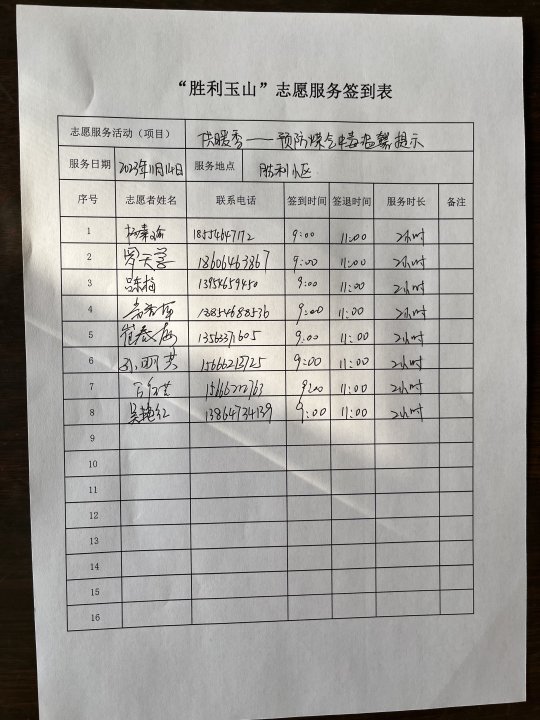 “胜利玉山”志愿服务签到表
志愿服务活动（项目） 供暖季——预防煤气中毒温馨提示
服务日期 2023年11月14日 服务地点 胜利小区
序号 志愿者姓名 联系电话 签到时间 签退时间 服务时长 备注
1 18554647172 9:00 11:00 2小时
2 18606463867 9:00 11:00 2小时
3 13954659450 9:00 11:00 2小时
4 13854688536 9:00 11:00 2小时
5 崔春梅 9:00 11:00 2小时
6 15666213725 9:00 11:00 2小时
7 15666212763 9:00 11:00 2小时
8 吴艳红 13864734139 9:00 11:00 2小时
9
10
11
12
13
14
15
16